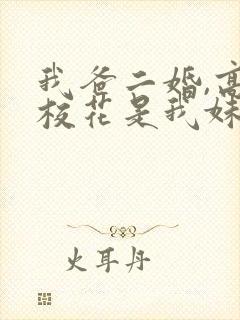 我爸二婚,高
校花是我妹
火耳丹